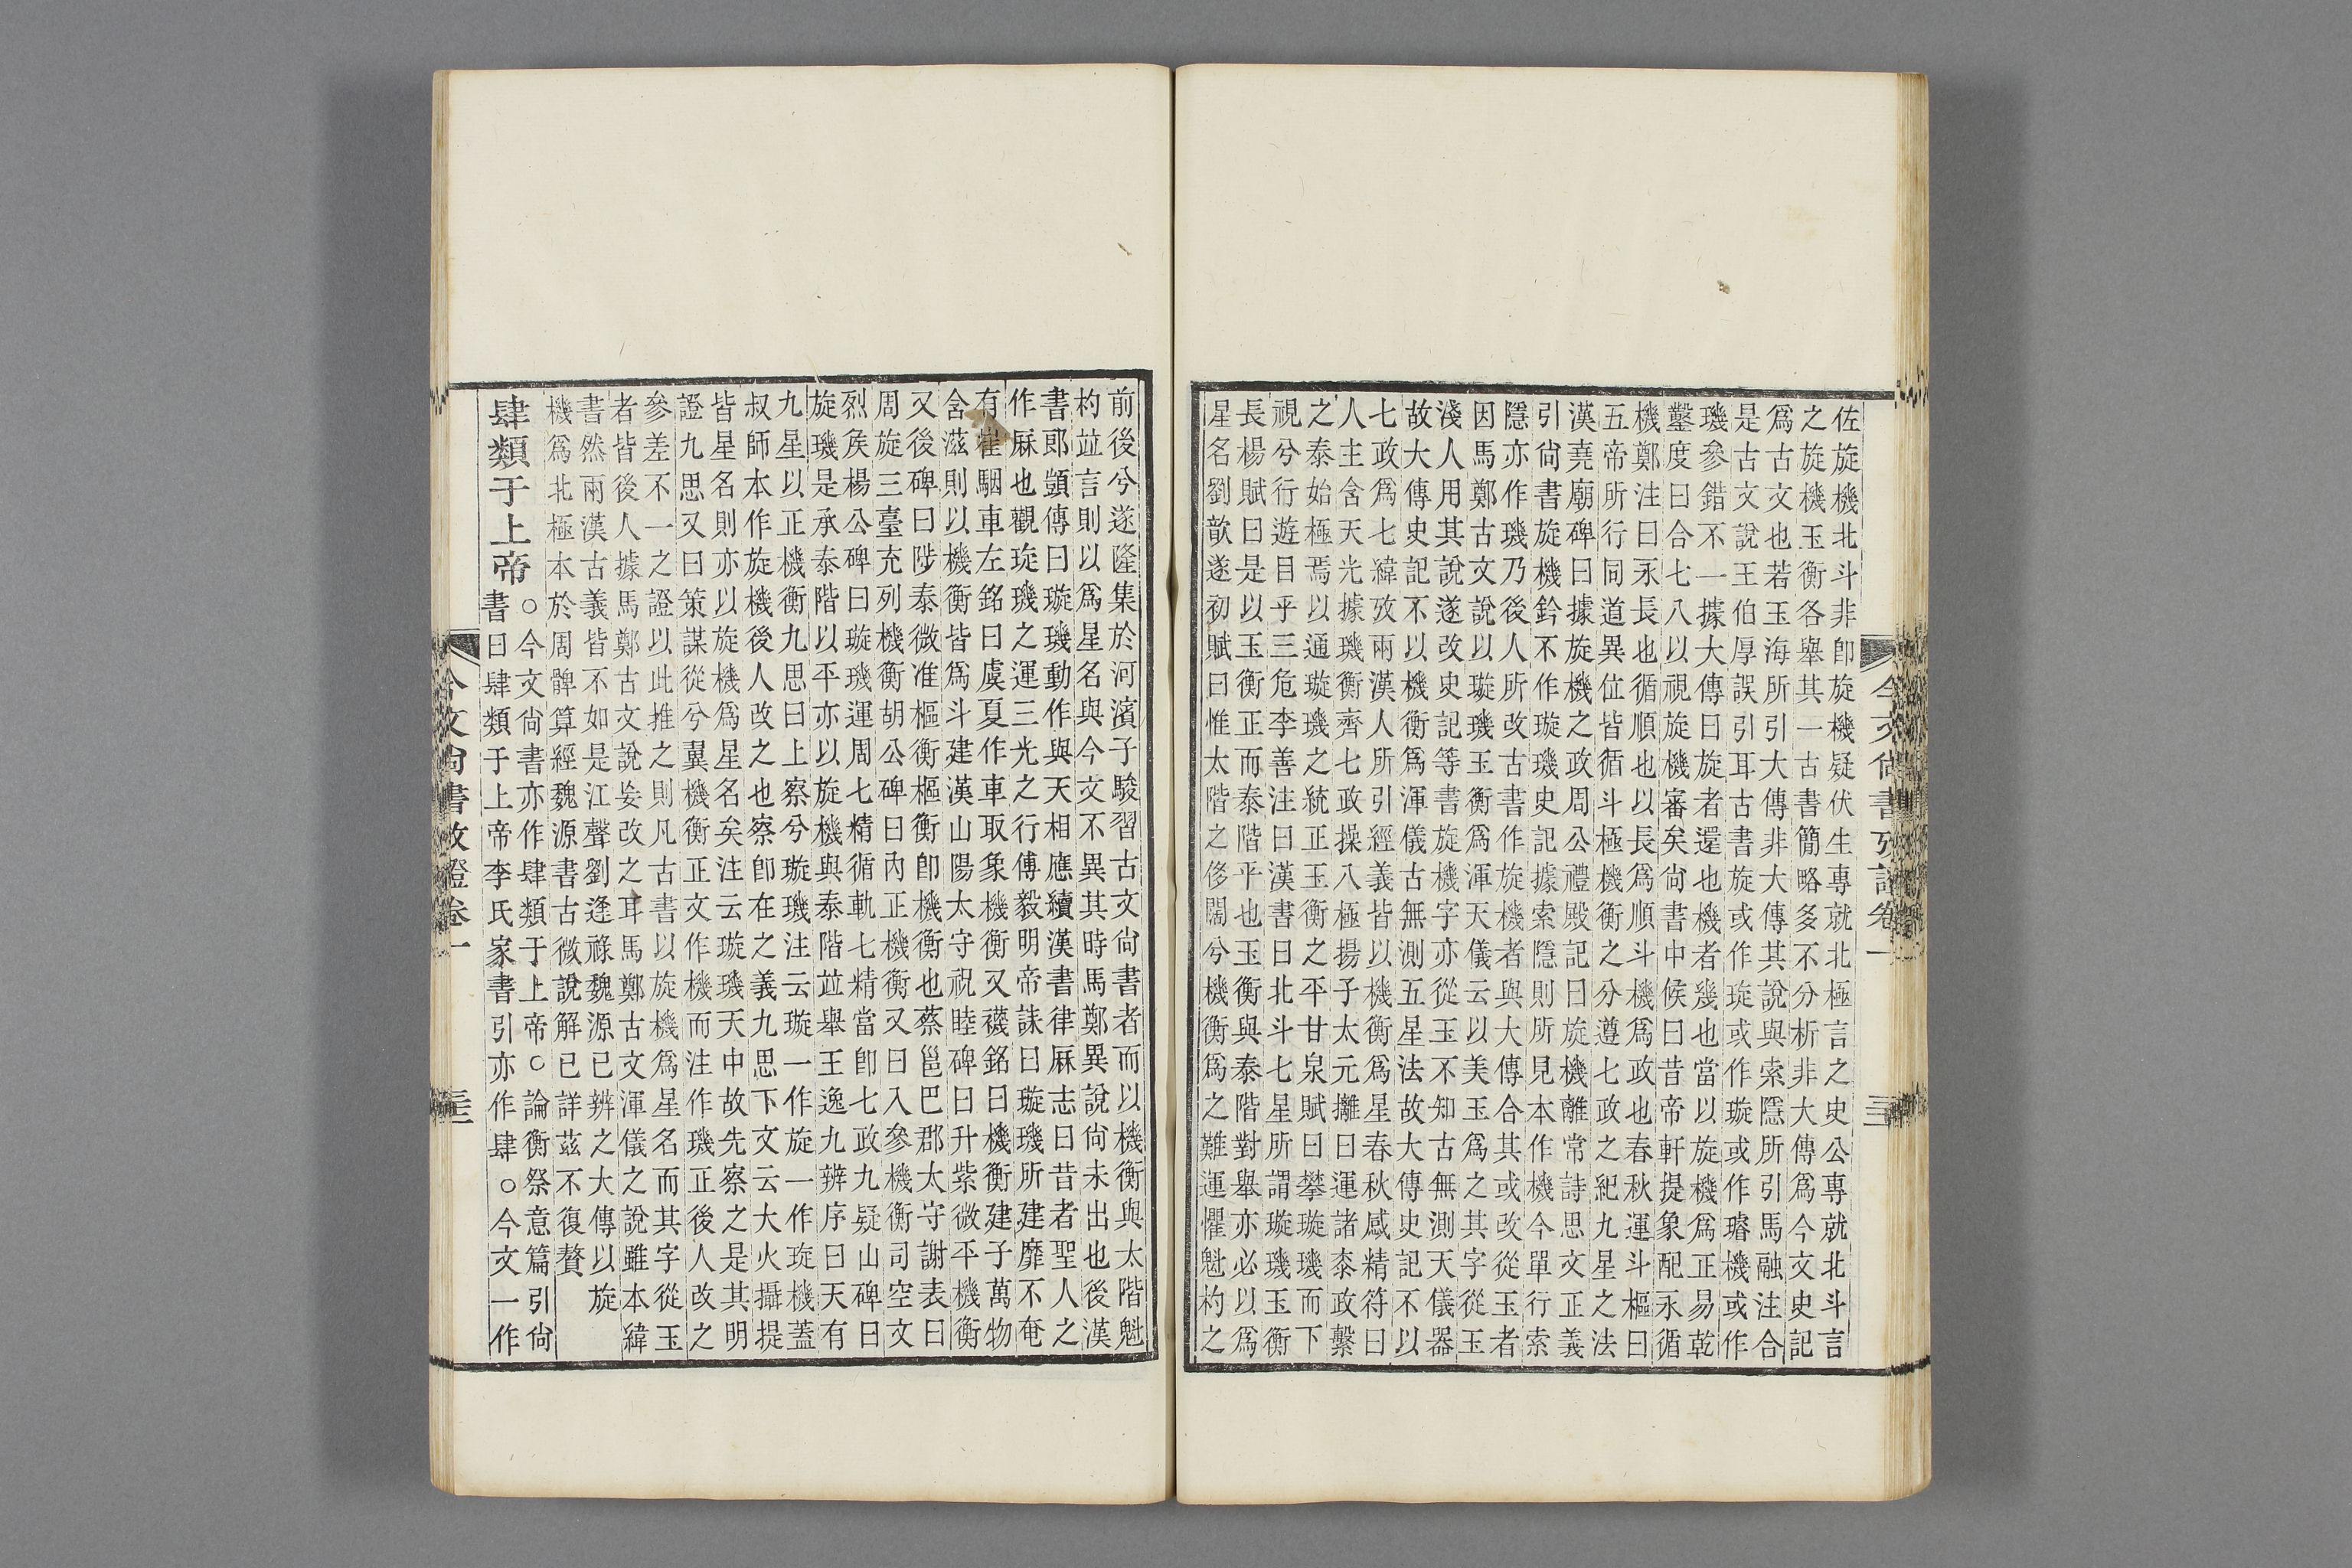 佐旋機北斗非卽旋機疑伏生專就北極言之史公專就北斗言
之旋機玉衡各舉其一古書簡略多不分析非大傳爲今文史記
爲古文也若玉海所引大傳非大傳其說與索隱所引馬融注合
是古文說王伯厚誤引耳古書旋或作琁或作璇或作璿機或作
璣參錯不一據大傳曰旋者還也機者幾也當以旋機爲正易乾
鑿度曰合七八以視旋機審矣尙書中候曰昔帝軒提象配永循
機鄭注曰永長也循順也以長爲順斗機爲政也春秋運斗樞曰
五帝所行同道異位皆循斗極機衡之分遵七政之紀九星之法
漢堯廟碑曰據旋機之政周公禮殿記曰旋機離常詩思文正義
引尙書旋機鈐不作璇璣史記據索隱則所見本作機今單行索
隱亦作璣乃後人所改古書作旋機者與大傳合其或改從玉者
因馬鄭古文說以璇璣玉衡爲渾天儀云以美玉爲之其字從玉
淺人用其說遂改史記等書旋機字亦從玉不知古無測天儀器
故大傳史記不以機衡爲渾儀古無測五星法故大傳史記不以
七政爲七緯攷兩漢人所引經義皆以機衡爲星春秋感精符曰
人主含天光據璣衡齊七政操八極揚子太元攡曰運諸桼政繫
之泰始極焉以通璇璣之統正玉衡之平甘泉賦曰攀璇璣而下
視兮行遊目乎三危李善注曰漢書曰北斗七星所謂璇璣玉衡
長楊賦曰是以玉衡正而泰階平也玉衡與泰階對舉亦必以爲
星名劉歆遂初賦曰惟太階之侈闊兮機衡爲之難運懼魁杓之
今文尙書攷證卷一
前後兮遂隆集於河濱子駿習古文尙書者而以機衡與太階魁
杓竝言則以爲星名與今文不異其時馬鄭異說尙未出也後漢
書郞顗傳曰璇璣動作與天相應續漢書律厤志曰昔者聖人之
作厤也觀琁璣之運三光之行傅毅明帝誄曰璇璣所建靡不奄
有崔駰車左銘曰虞夏作車取象機衡又襪銘曰機衡建子萬物
含滋則以機衡皆爲斗建漢山陽太守祝睦碑曰升紫微平機衡
又後碑曰陟泰微准樞衡樞衡卽機衡也蔡邕巴郡太守謝表曰
周旋三臺充列機衡胡公碑曰內正機衡又曰入參機衡司空文
烈矦楊公碑曰璇璣運周七精循軌七精當卽七政九疑山碑曰
旋璣是承泰階以平亦以旋機與泰階竝舉王逸九辨序曰天有
九星以正機衡九思曰上察兮璇璣注云璇一作旋一作琁機蓋
叔師本作旋機後人改之也察卽在之義九思下文云大火攝提
皆星名則亦以旋機爲星名矣注云璇璣天中故先察之是其明
證九思又曰策謀從兮翼機衡正文作機而注作璣正後人改之
參差不一之證以此推之則凡古書以旋機爲星名而其字從玉
者皆後人據馬鄭古文說妄改之耳馬鄭古文渾儀之說雖本緯
書然兩漢古義皆不如是江聲劉逢祿魏源已辨之大傳以旋
機爲北極本於周髀算經魏源書古微說解已詳茲不復贅
肆類于上帝○今文尙書亦作肆類于上帝○論衡祭意篇引尙
書曰肆類于上帝李氏家書引亦作肆○今文一作
今文尙書攷證卷一